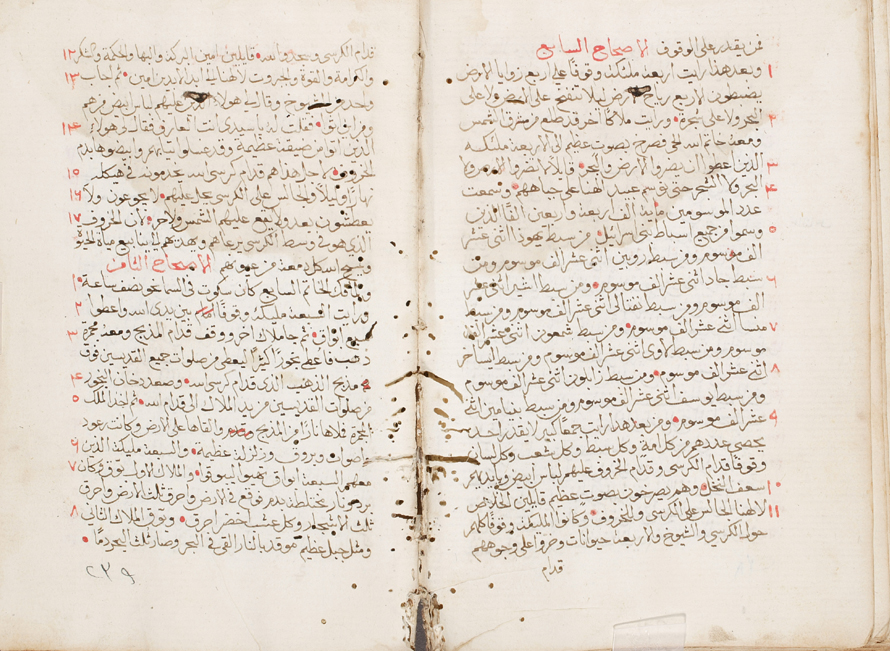 فمن يقدر على الوقوف الاصحاح السابع
١ وبعد هذا رايت اربعة ملئكة وقوفا على اربع زوايا الارض
يضبطون الاربع رياح الارض ليلا تنفخ على الارض ولا على
٢ البحر ولا على شجرة ورايت ملاكا اخر قد طلع من مشرق الشمس
ومعه خاتم الله الحي فصرخ بصوت عظيم الى الاربعة ملئكة
٣ الذين اعطوا ان يضروا الارض والبحر قايلا لا تضروا الارض ولا
٤ البحر ولا الشجر حتى نوسم عبيد الهنا على جباههم وسمعت
عدد الموسومين ماية الف اربعة واربعين الفا الذين
٥ وسموا من جميع اسباط بني اسرايل من سبط يهودا اثنى عشر
الف موسوم ومن سبط روبين اثنى عشر الف موسوم ومن
٦ سبط جاد اثنى عشر الف موسوم ومن سبط اشير اثنى عشر
الف موسوم ومن سبط نفتالى اثنى عشر الف موسوم ومن سبط
٧ منسا اثنى عشر الف موسوم ومن سبط شمعون اثنى عشر الف
موسوم ومن سبط لاوى اثنى عشر الف موسوم ومن سبط ايساخر
٨ اثنى عشر الف موسوم ومن سبط زابلون اثنى عشر الف موسوم
ومن سبط يوسف اثنى عشر الف موسوم ومن سبط بنيامين اثنى
٩ عشر الف موسوم ومن بعد هذا رايت جمعا كبيرا لا يقدر احد
يحصى عددهم من كل امة وكل سبط وكل شعب وكل لسان
وقوفا قدام الكرسي وقدام الخروف عليهم لباس ابيض وبايديهم
١٠ سعف النخل وهم يصرخون بصوت عظيم قايلين الخلاص
١١ لالهنا الجالس على الكرسي والخروف وكانوا الملئكة وقوفا كلهم
حول الكرسي والشيوخ والاربعة حيوانات وخروا على وجوههم
قدام
١٢ قدام الكرسي وسجدوا لله قايلين امين البركة والبها والحكمة والشكر
١٣ والكرامة والقوة والجبروت لالهنا الى ابد الابدين امين ثم اجاب
واحد من الشيوخ وقال لي هولاء الذين عليهم لباس ابيض من هم
١٤ ومن اين اتوا فقلت له يا سيدى انت العارف فقال لي هولاء
الذين اتوا من ضيقة عظيمة وقد غسلوا ثيابهم وبيضوها بدم
١٥ الخروف لاجل هذا هم قدام كرسي الله يخدمونه في هيكله
١٦ نهارا وليلا والجالس على الكرسي يحل عليهم لا يجوعون ولا
١٧ يعطشون بعد ولا يقع عليهم الشمس ولا حر لان الخروف
الذى هو في وسط الكرسي يرعاهم ويهديهم الى ينابيع مياه الحيوة
ويمسح الله كل دمعة من عيونهم الاصحاح الثامن
١ ولما فك الخاتم السابع كان سكوت في السما نحو نصف ساعة
٢ ورايت السبعة مليكة وقوفا بين يدى الله واعطوا
٣ سبع ابواق ثم جا ملاك اخر ووقف قدام المذبح ومعه مجمرة
ذهب فاعطى بخورا كثيرا ليعطى من صلوات جميع القديسين فوق
٤ مذبح الذهب الذى قدام كرسي الله وصعد دخان البخور
٥ من صلوات القديسين من يد الملاك الى قدام الله ثم اخذ الملك
المجمرة فملاها نارا من المذبح والقاها على الارض وكانت رعود
٦ واصوات وبروق وزلزلة عظيمة والسبعة مليكة الذين
٧ معهم السبعة ابواق تهيوا ليبوقوا والملاك الاول بوق فكان
برد ونار مختلطة بدم فوقع في الارض واحرق ثلث الارض وحرق
٨ ثلث الاشجار وكل عشب اخضر احرق وبوق الملاك الثاني
ومثل جبل عظيم موقد بالنار القي في البحر وصار ثلث البحر دما
٢٣٩